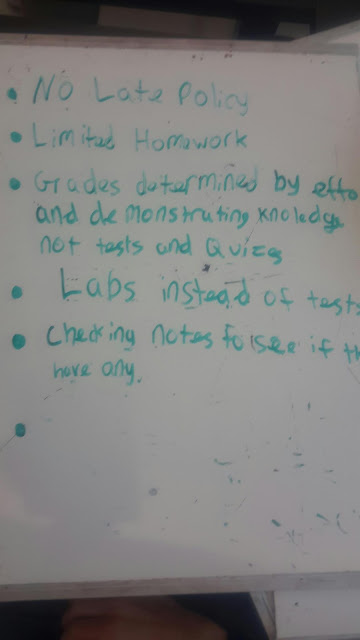 • No Late Policy
• Limited Homework
• Grades determined by effo
and demonstrating knoledge
not tests and Quizes
• Labs instead of tests
• Checking notes to see if th
have any.
•